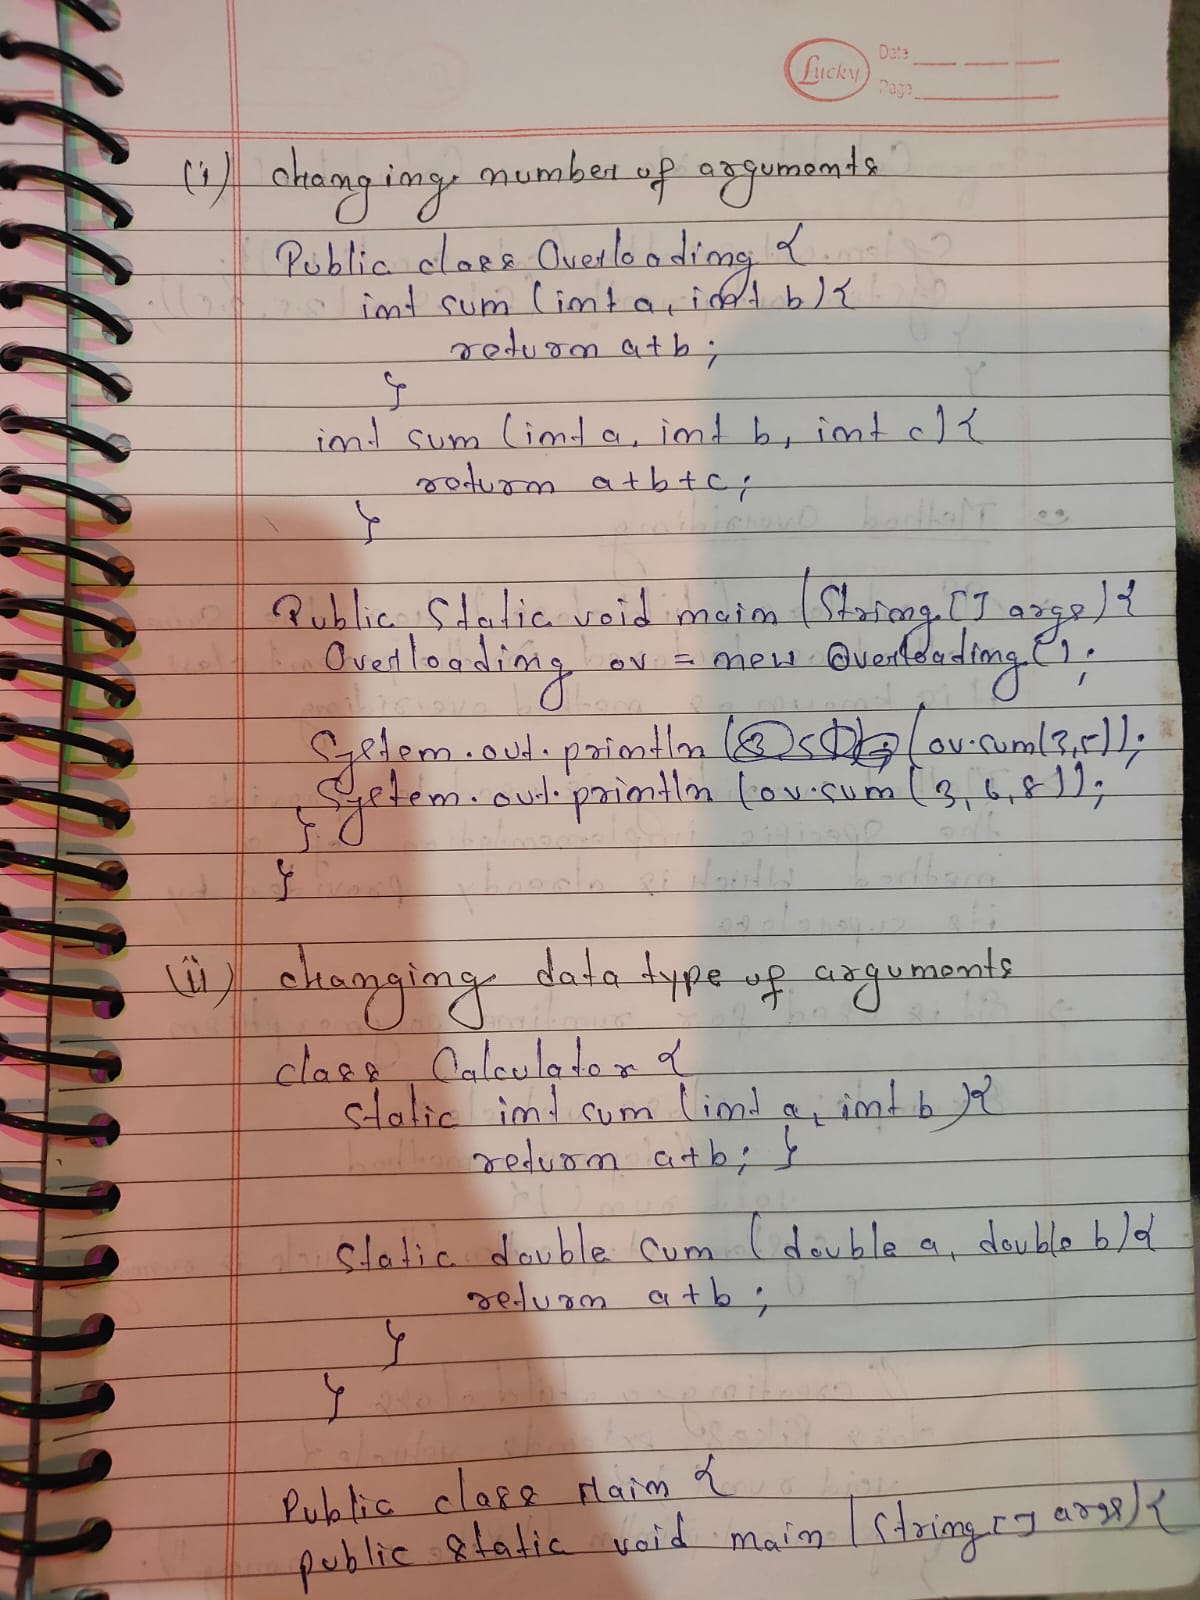 Lucky
Date
Page
(i) changing number of arguments
Public class Overloading {
int sum (int a, int b) {
return a+b ;
}
int sum (int a, int b, int c) {
return a+b+c;
}
Public Static void main (String [] args) {
Overloading ov = new Overloading ();
System.out.println (ov.sum(3,5));
System.out.println (ov.sum (3, 6, 8));
}
}
(ii) changing data type of arguments
class Calculator {
static int sum (int a, int b) {
return a+b; }
static double sum (double a, double b) {
return a+b ;
}
}
Public class Main {
public static void main (String [] args) {